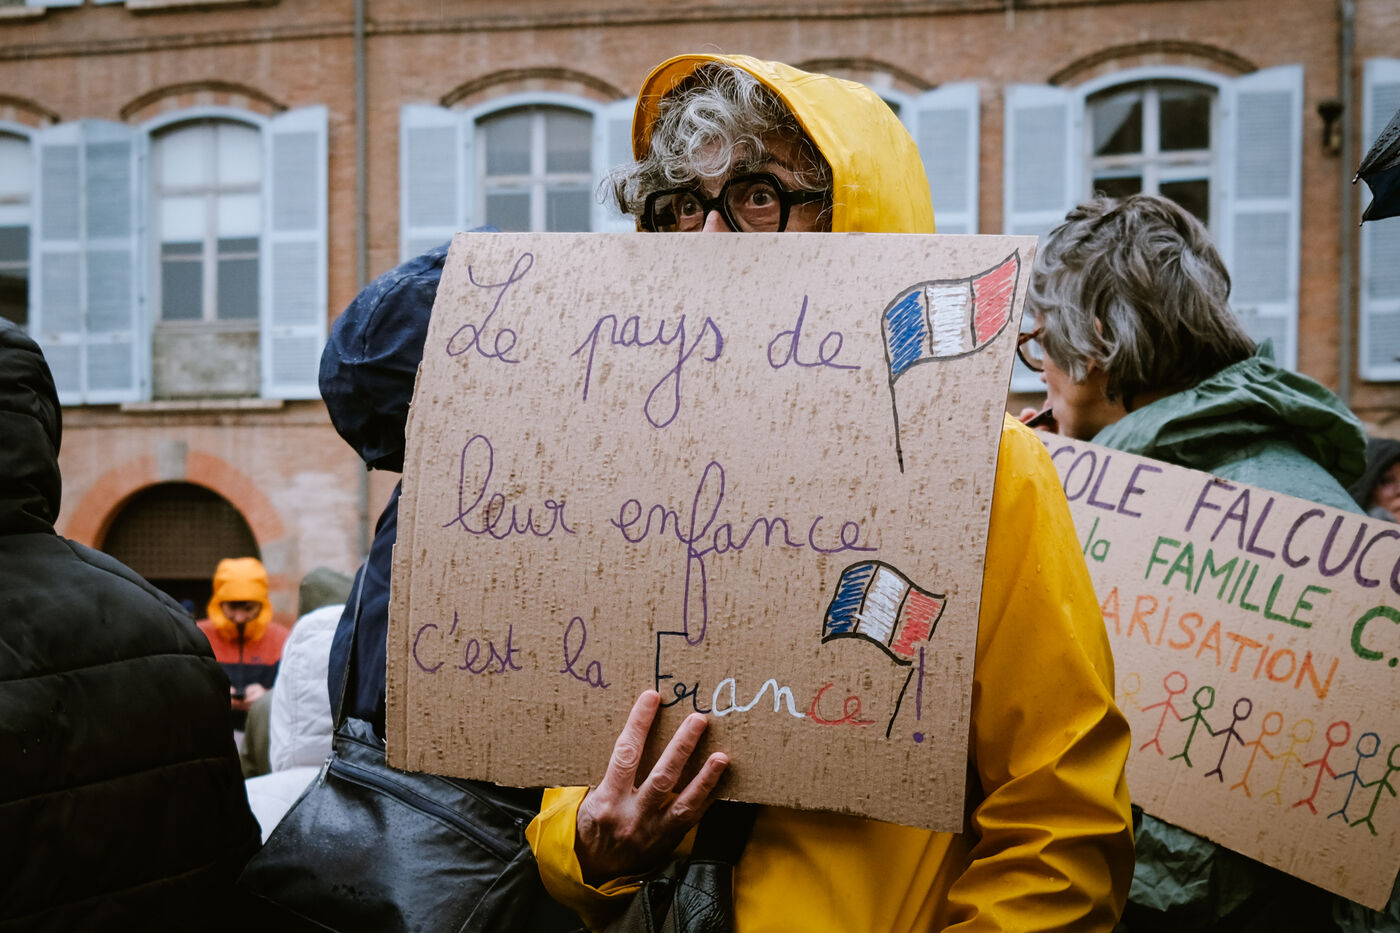 Le pays de
leur enfance
c'est la France !
COLE FALCUCC
la FAMILLE C.
ARISATiON